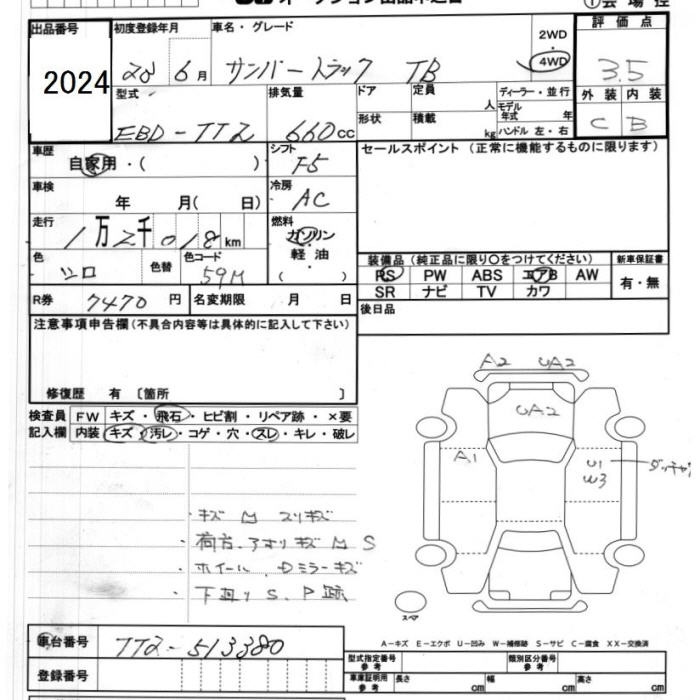 出品番号 初度登録年月 車名・グレード 評価点
2024 20 6月 サンバートラック TB 2WD・4WD 3.5
型式 排気量 ドア 定員 人 ディーラー・並行 外装 内装
EBD-TT2 660cc 形状 積載 kg モデル年式 年 ハンドル 左・右 C B
車歴 自家用・( ) シフト F5 セールスポイント(正常に機能するものに限ります)
車検 年 月( 日) 冷房 AC
走行 1万2千018km 燃料 ガソリン 軽油 ( )
色 シロ 色替 色コード 59M
装備品(純正品に限り○をつけてください) 新車保証書
PS PW ABS エアB AW 有・無
SR ナビ TV カワ
R券 7470円 名変期限 月 日 後日品
注意事項申告欄(不具合内容等は具体的に記入して下さい)
修復歴 有〔箇所 〕
検査員記入欄 FW キズ・飛石・ヒビ割・リペア跡・×要
内装 キズ・汚レ・コゲ・穴・スレ・キレ・破レ
A2 UA2
UA2
A1 U1 W3
・キズ M スリキズ
・荷台、アオリキズ M S
・ホイール、Dミラーキズ
・下廻り S、P跡
スペア
A-キズ E-エクボ U-凹み W-補修跡 S-サビ C-腐食 XX-交換済
車台番号 TT2-513380
登録番号
型式指定番号 参考 類別区分番号 参考
車庫証明用 参考 長さ cm 幅 cm 高さ cm